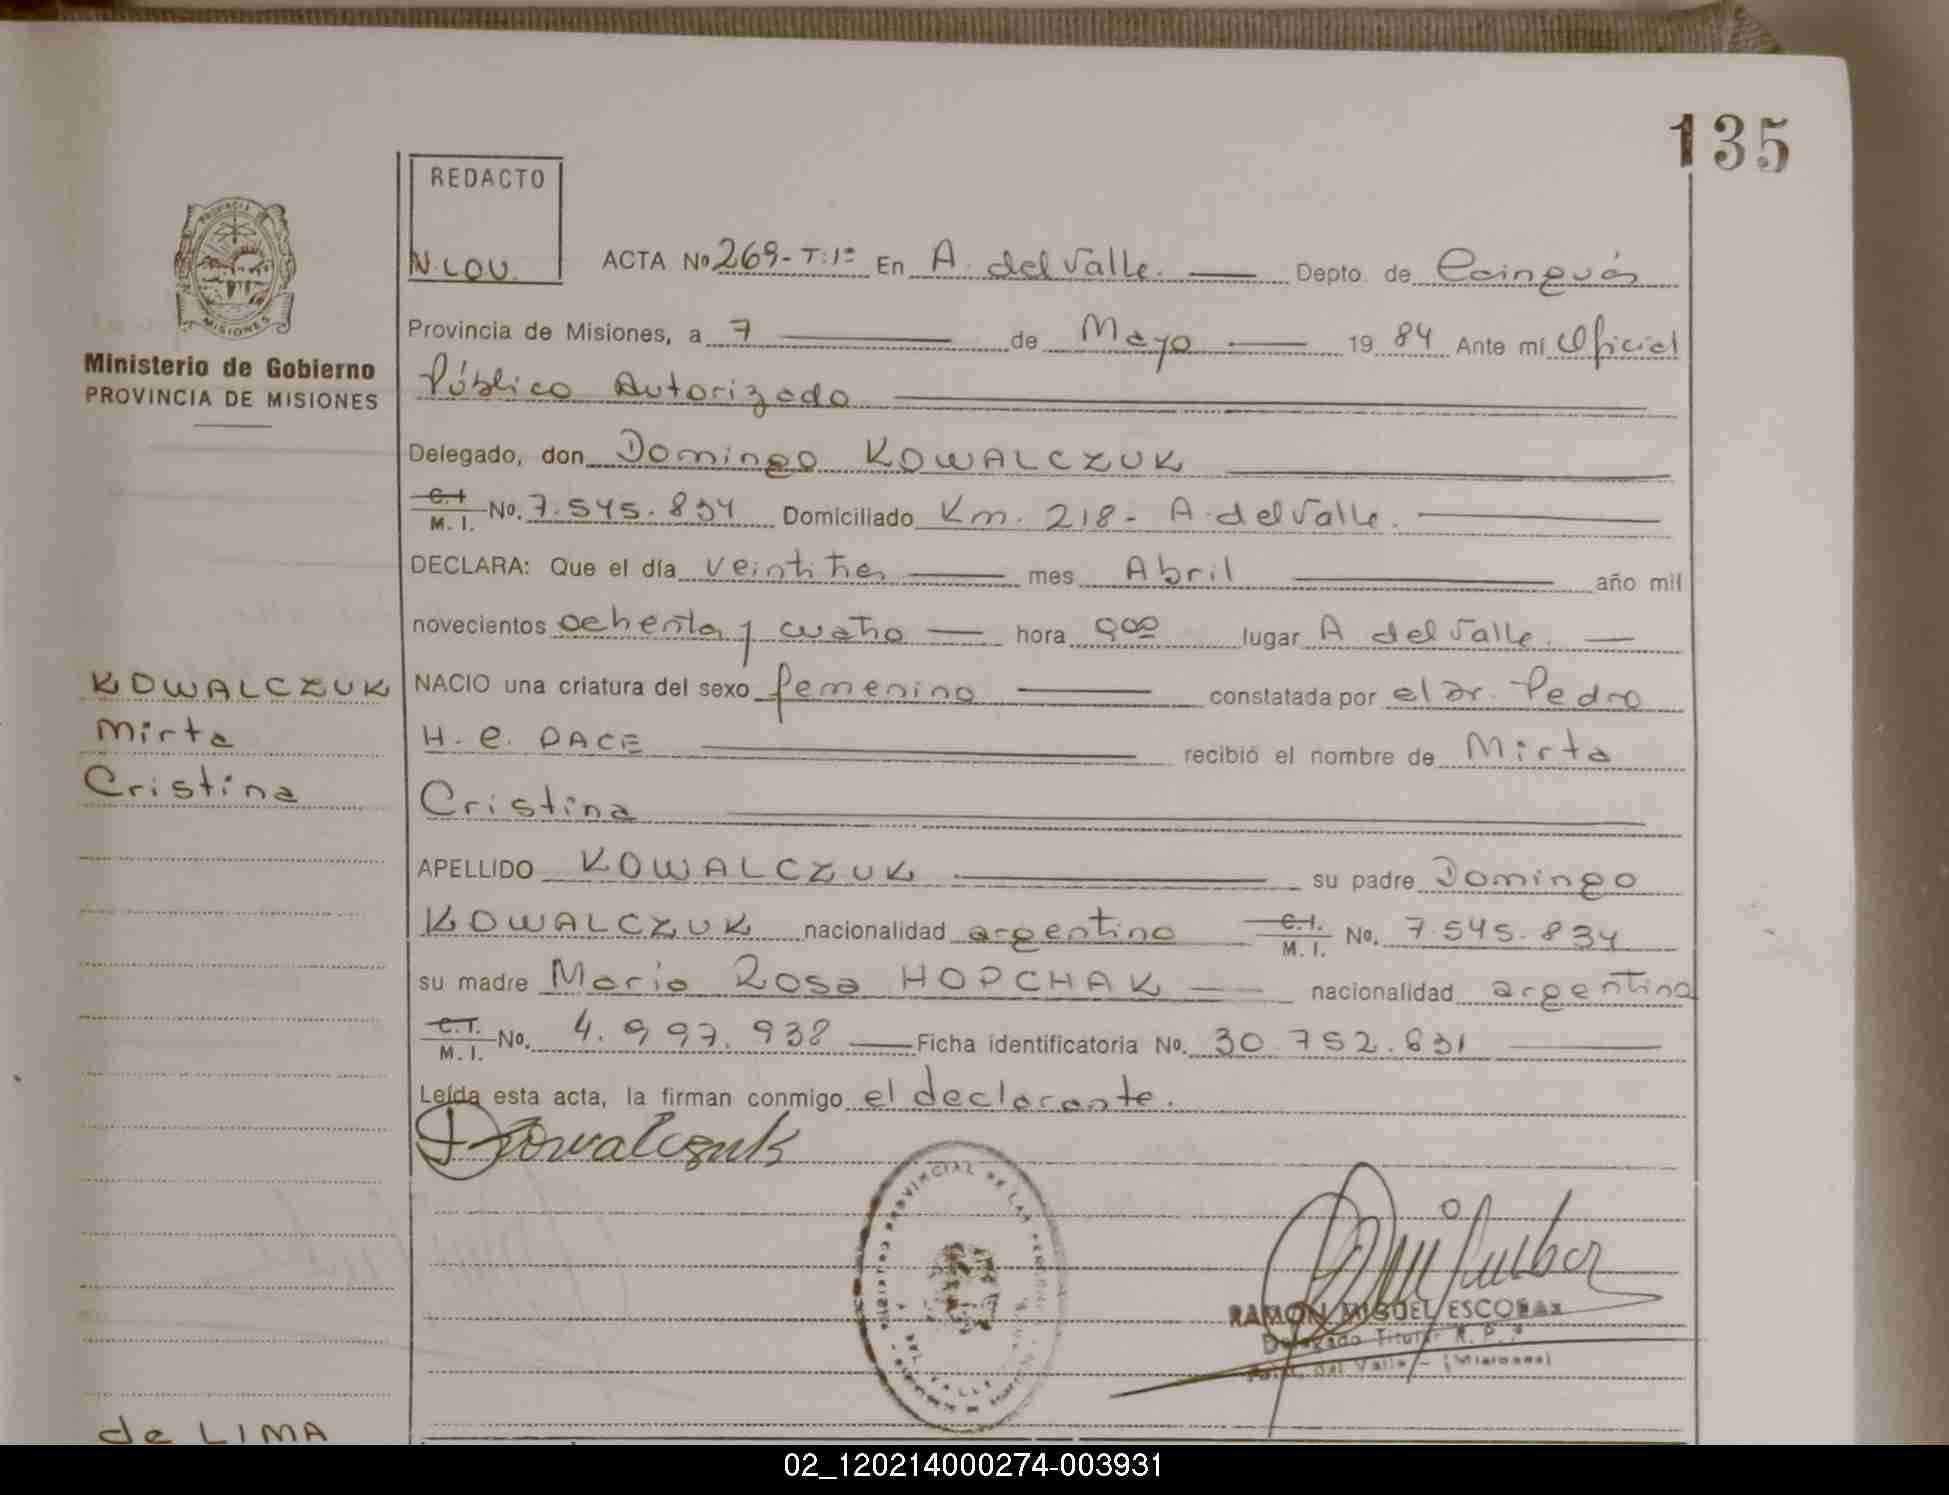 135
REDACTO
N. LOV.
ACTA Nº 269-T:1º En A. del Valle. Depto. de Cainguás
Provincia de Misiones, a 7 de Mayo 19 84 Ante mí Oficial
Ministerio de Gobierno
PROVINCIA DE MISIONES
Público Autorizado
Delegado, don Domingo KOWALCZUK
C.I. M. I. No. 7.545.834 Domiciliado Km. 218- A. del Valle.
DECLARA: Que el día veintitres mes Abril año mil
novecientos ochenta y cuatro hora 900 lugar A del Valle.
NACIO una criatura del sexo femenino constatada por el Dr. Pedro
H. C. DACE recibió el nombre de Mirta
Cristina
KOWALCZUK
Mirta
Cristina
APELLIDO KOWALCZUK su padre Domingo
KOWALCZUK nacionalidad argentino C.I. M. I. No. 7.545.834
su madre Maria Rosa HOPCHAK nacionalidad argentina
C.I. M. I. No. 4.997.938 Ficha identificatoria No. 30.752.831
Leída esta acta, la firman conmigo el declarante.
DKowalczuk
RAMON MIGUEL ESCOBAR
Delegado Titular R. P.
del Valle - (Misiones)
de LIMA
02_120214000274-003931